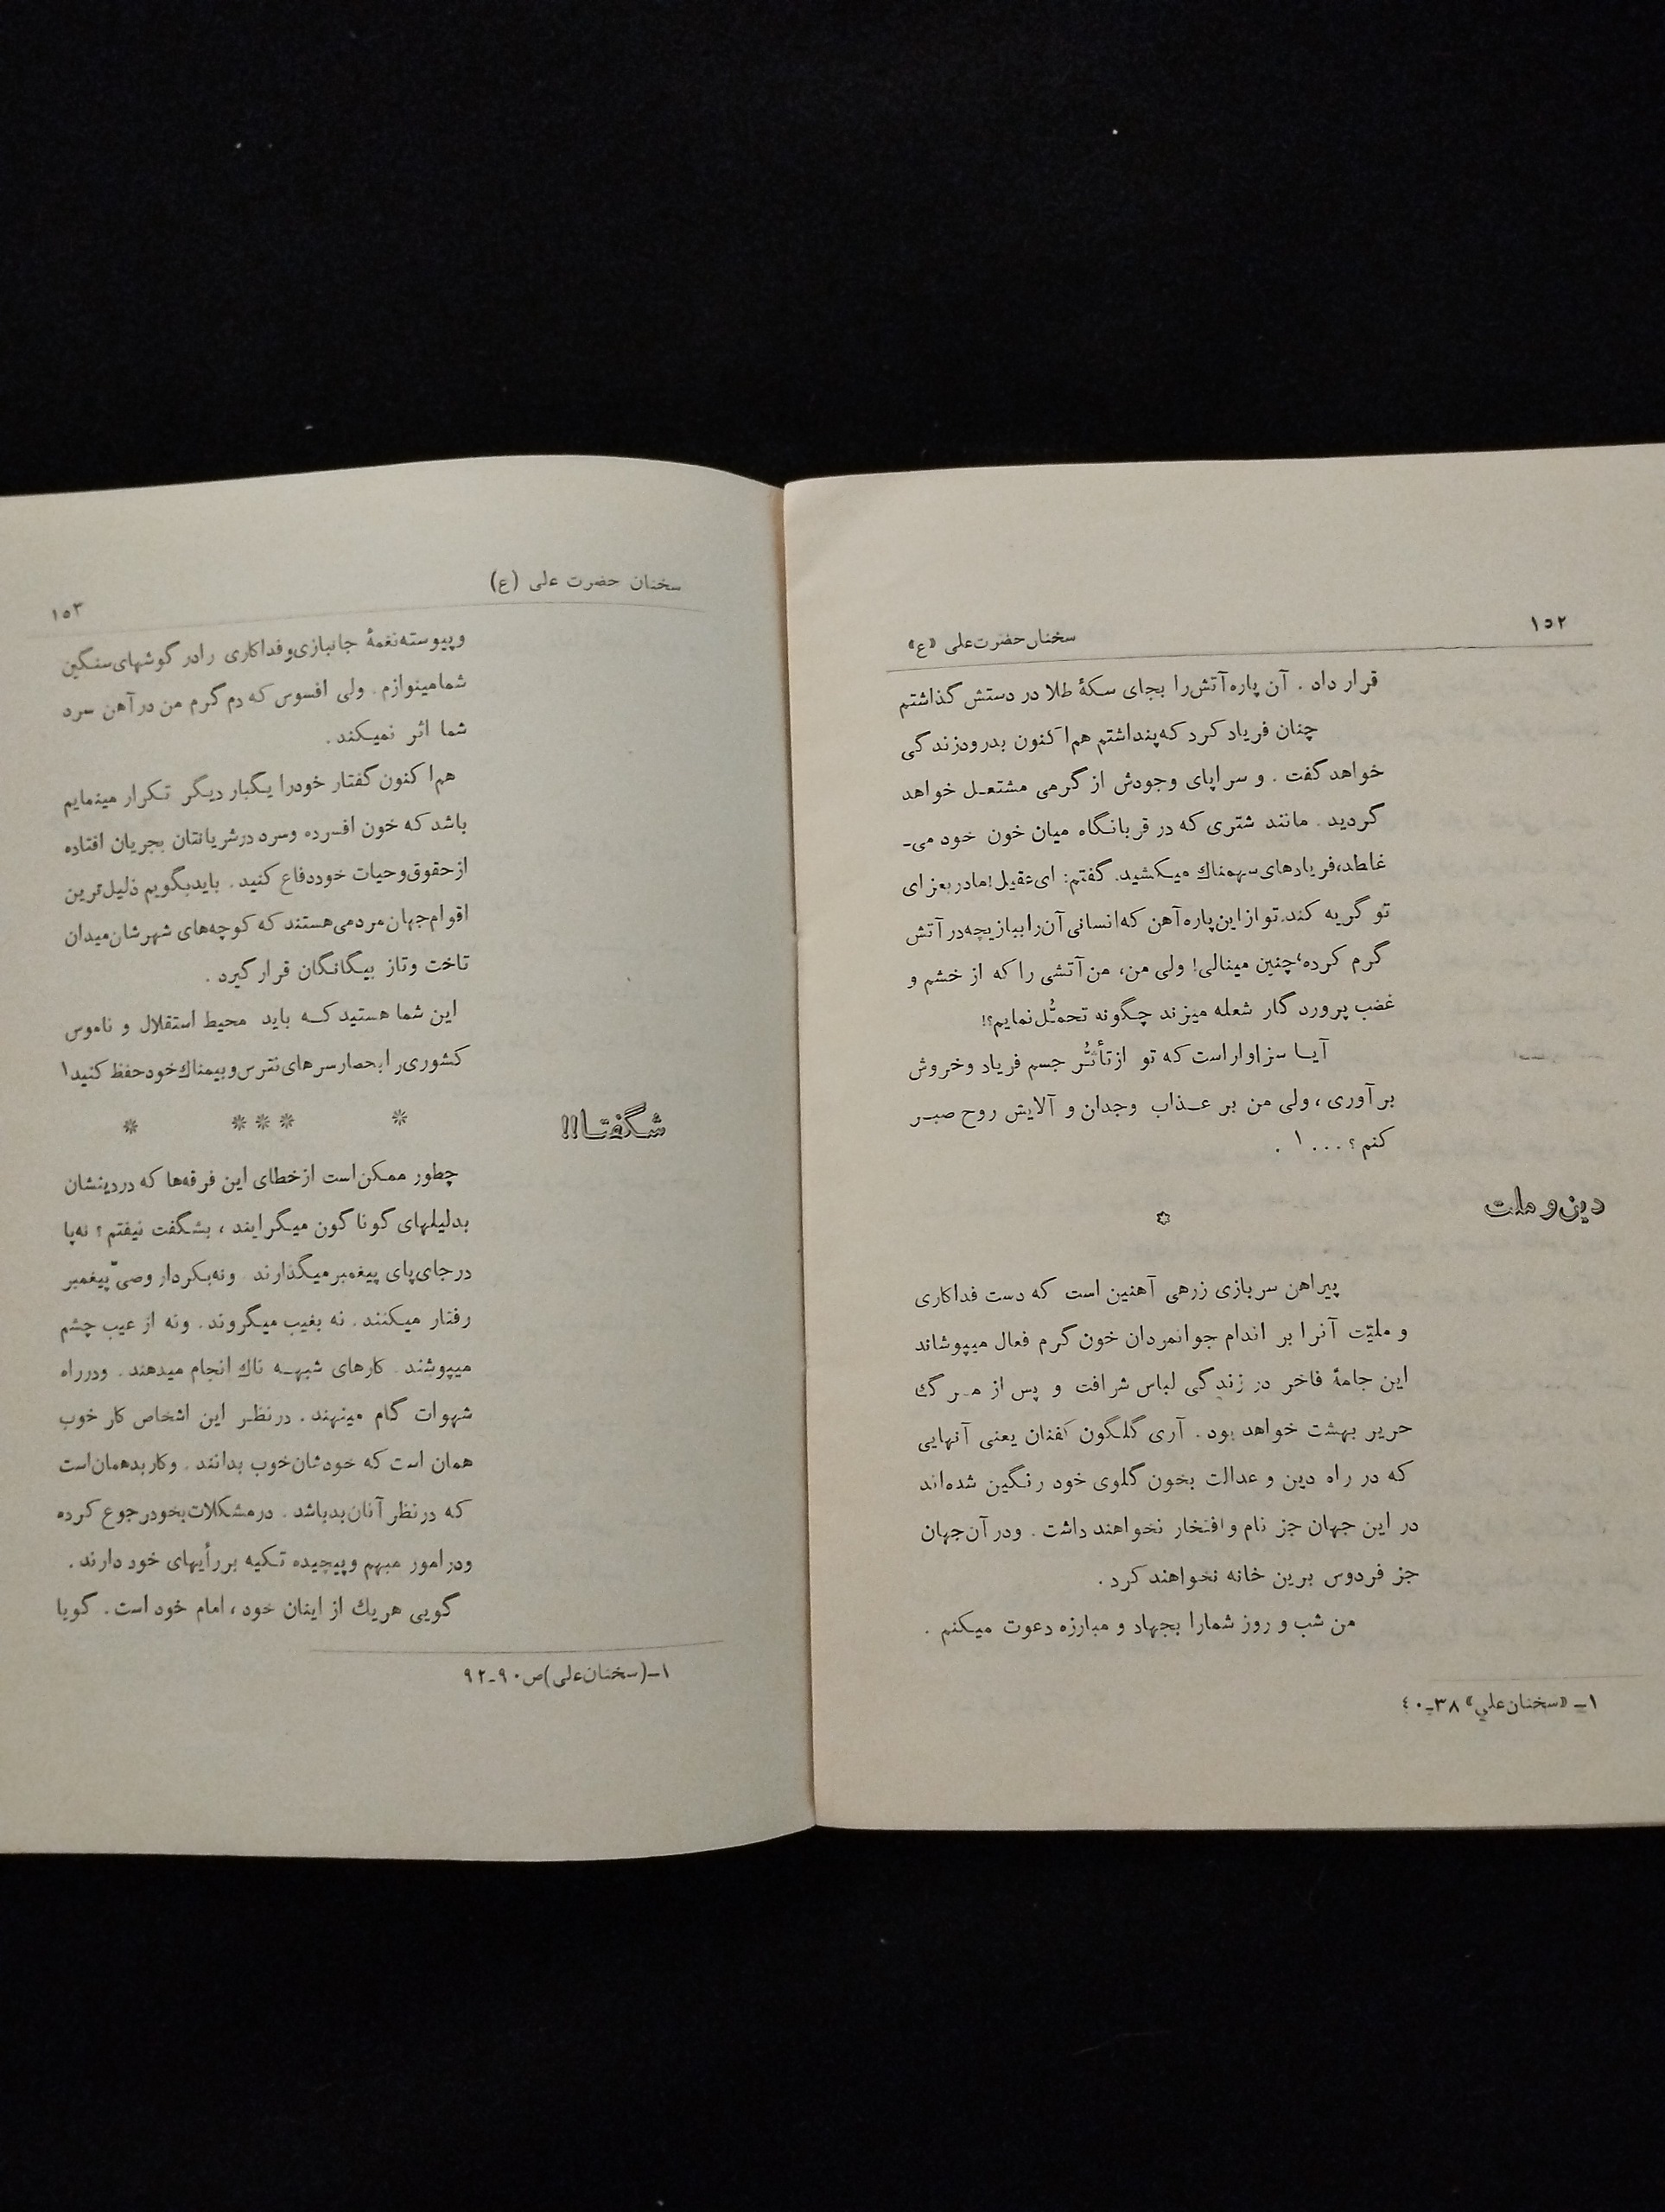 ۱۵۲
سخنان حضرت علی «ع»
قرار داد . آن پاره آتش را بجای سکهٔ طلا در دستش گذاشتم
چنان فریاد کرد که پنداشتم هم‌اکنون بدرود زندگی
خواهد گفت . و سراپای وجودش از گرمی مشتعل خواهد
گردید . مانند شتری که در قربانگاه میان خون خود می‌ـ
غلطد، فریادهای سهمناك میکشید. گفتم: ای عقیل! مادر بعزای
تو گریه کند. تو از این پاره آهن که انسانی آن را ببازیچه در آتش
گرم کرده، چنین مینالی! ولی من، من آتشی را که از خشم و
غضب پروردگار شعله میزند چگونه تحمّل نمایم؟!
آیا سزاوار است که تو از تأثّر جسم فریاد و خروش
برآوری ، ولی من بر عذاب وجدان و آلایش روح صبر
کنم ؟ ... ۱ .
دین و ملت
پیراهن سربازی زرهی آهنین است که دست فداکاری
و ملیّت آنرا بر اندام جوانمردان خون گرم فعال میپوشاند
این جامهٔ فاخر در زندگی لباس شرافت و پس از مرگ
حریر بهشت خواهد بود . آری گلگون کفنان یعنی آنهایی
که در راه دین و عدالت بخون گلوی خود رنگین شده‌اند
در این جهان جز نام و افتخار نخواهند داشت . و در آن جهان
جز فردوس برین خانه نخواهند کرد .
من شب و روز شمارا بجهاد و مبارزه دعوت میکنم .
۱ـ «سخنان علي» ۳۸ـ۴۰
سخنان حضرت علی (ع)
۱۵۳
و پیوسته نغمهٔ جانبازی و فداکاری را در گوشهای سنگین
شما مینوازم . ولی افسوس که دم گرم من در آهن سرد
شما اثر نمیکند .
هم‌اکنون گفتار خود را یکبار دیگر تکرار مینمایم
باشد که خون افسرده و سرد در شریانتان بجریان افتاده
از حقوق و حیات خود دفاع کنید . باید بگویم ذلیل‌ترین
اقوام جهان مردمی هستند که کوچه‌های شهرشان میدان
تاخت و تاز بیگانگان قرار گیرد .
این شما هستید که باید محیط استقلال و ناموس
کشوری را بحصار سرهای نترس و بیمناك خود حفظ کنید۱
شگفتا!!
* *** *
چطور ممکن است از خطای این فرقه‌ها که در دینشان
بدلیلهای گوناگون میگرایند ، بشگفت نیفتم ؟ نه پا
در جای پای پیغمبر میگذارند و نه بکردار وصیّ پیغمبر
رفتار میکنند . نه بغیب میگروند . و نه از عیب چشم
میپوشند . کارهای شبهه ناك انجام میدهند . و در راه
شهوات گام مینهند . در نظر این اشخاص کار خوب
همان است که خودشان خوب بدانند . و کار بد همان است
که در نظر آنان بد باشد . در مشکلات بخود رجوع کرده
و در امور مبهم و پیچیده تکیه بر رأیهای خود دارند .
گویی هریك از اینان خود ، امام خود است . گویا
۱ـ(سخنان علی)ص۹۰ـ۹۲